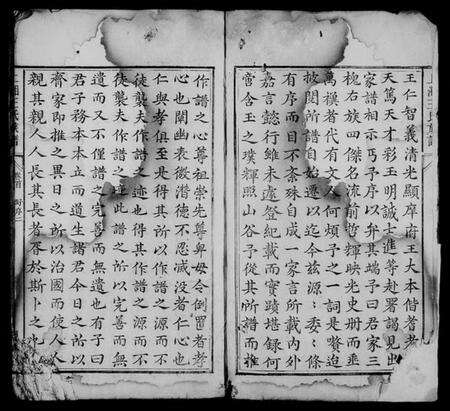 王仁智義清光顯摩府王大本偕耆老
天篤天才彩玉明誠士進等赴署謁見出
家譜相示丐予序以弁其端予曰君家三
槐右族四傑名流前哲輝映光史冊而垂
萬禩者代有文人何煩予之一詞是贅迨
披閱所譜自始遷以迄今茲源源委委條
有序而目不紊殊自成一家言所載內外
嘉言懿行雖未遽登紀載而實蹟堪錄何
啻含玉之璞輝照山谷予從其所譜而推
作譜之心尊祖崇先尊卑毋令倒置者孝
心也闡幽表微潛德不忍滅没者仁心也
仁與孝俱至是得其所以作譜之源而不
徒襲夫作譜之迹也得其作譜之源而不
徒襲夫作譜之迹此譜之所以完善而無
遺而又不僅譜之完善而無遺也有子曰
君子務本本立而道生諸君今日之所以
齊家即推之異日之所以治國而使人人
親其親人人長其長者胥於斯卜之也